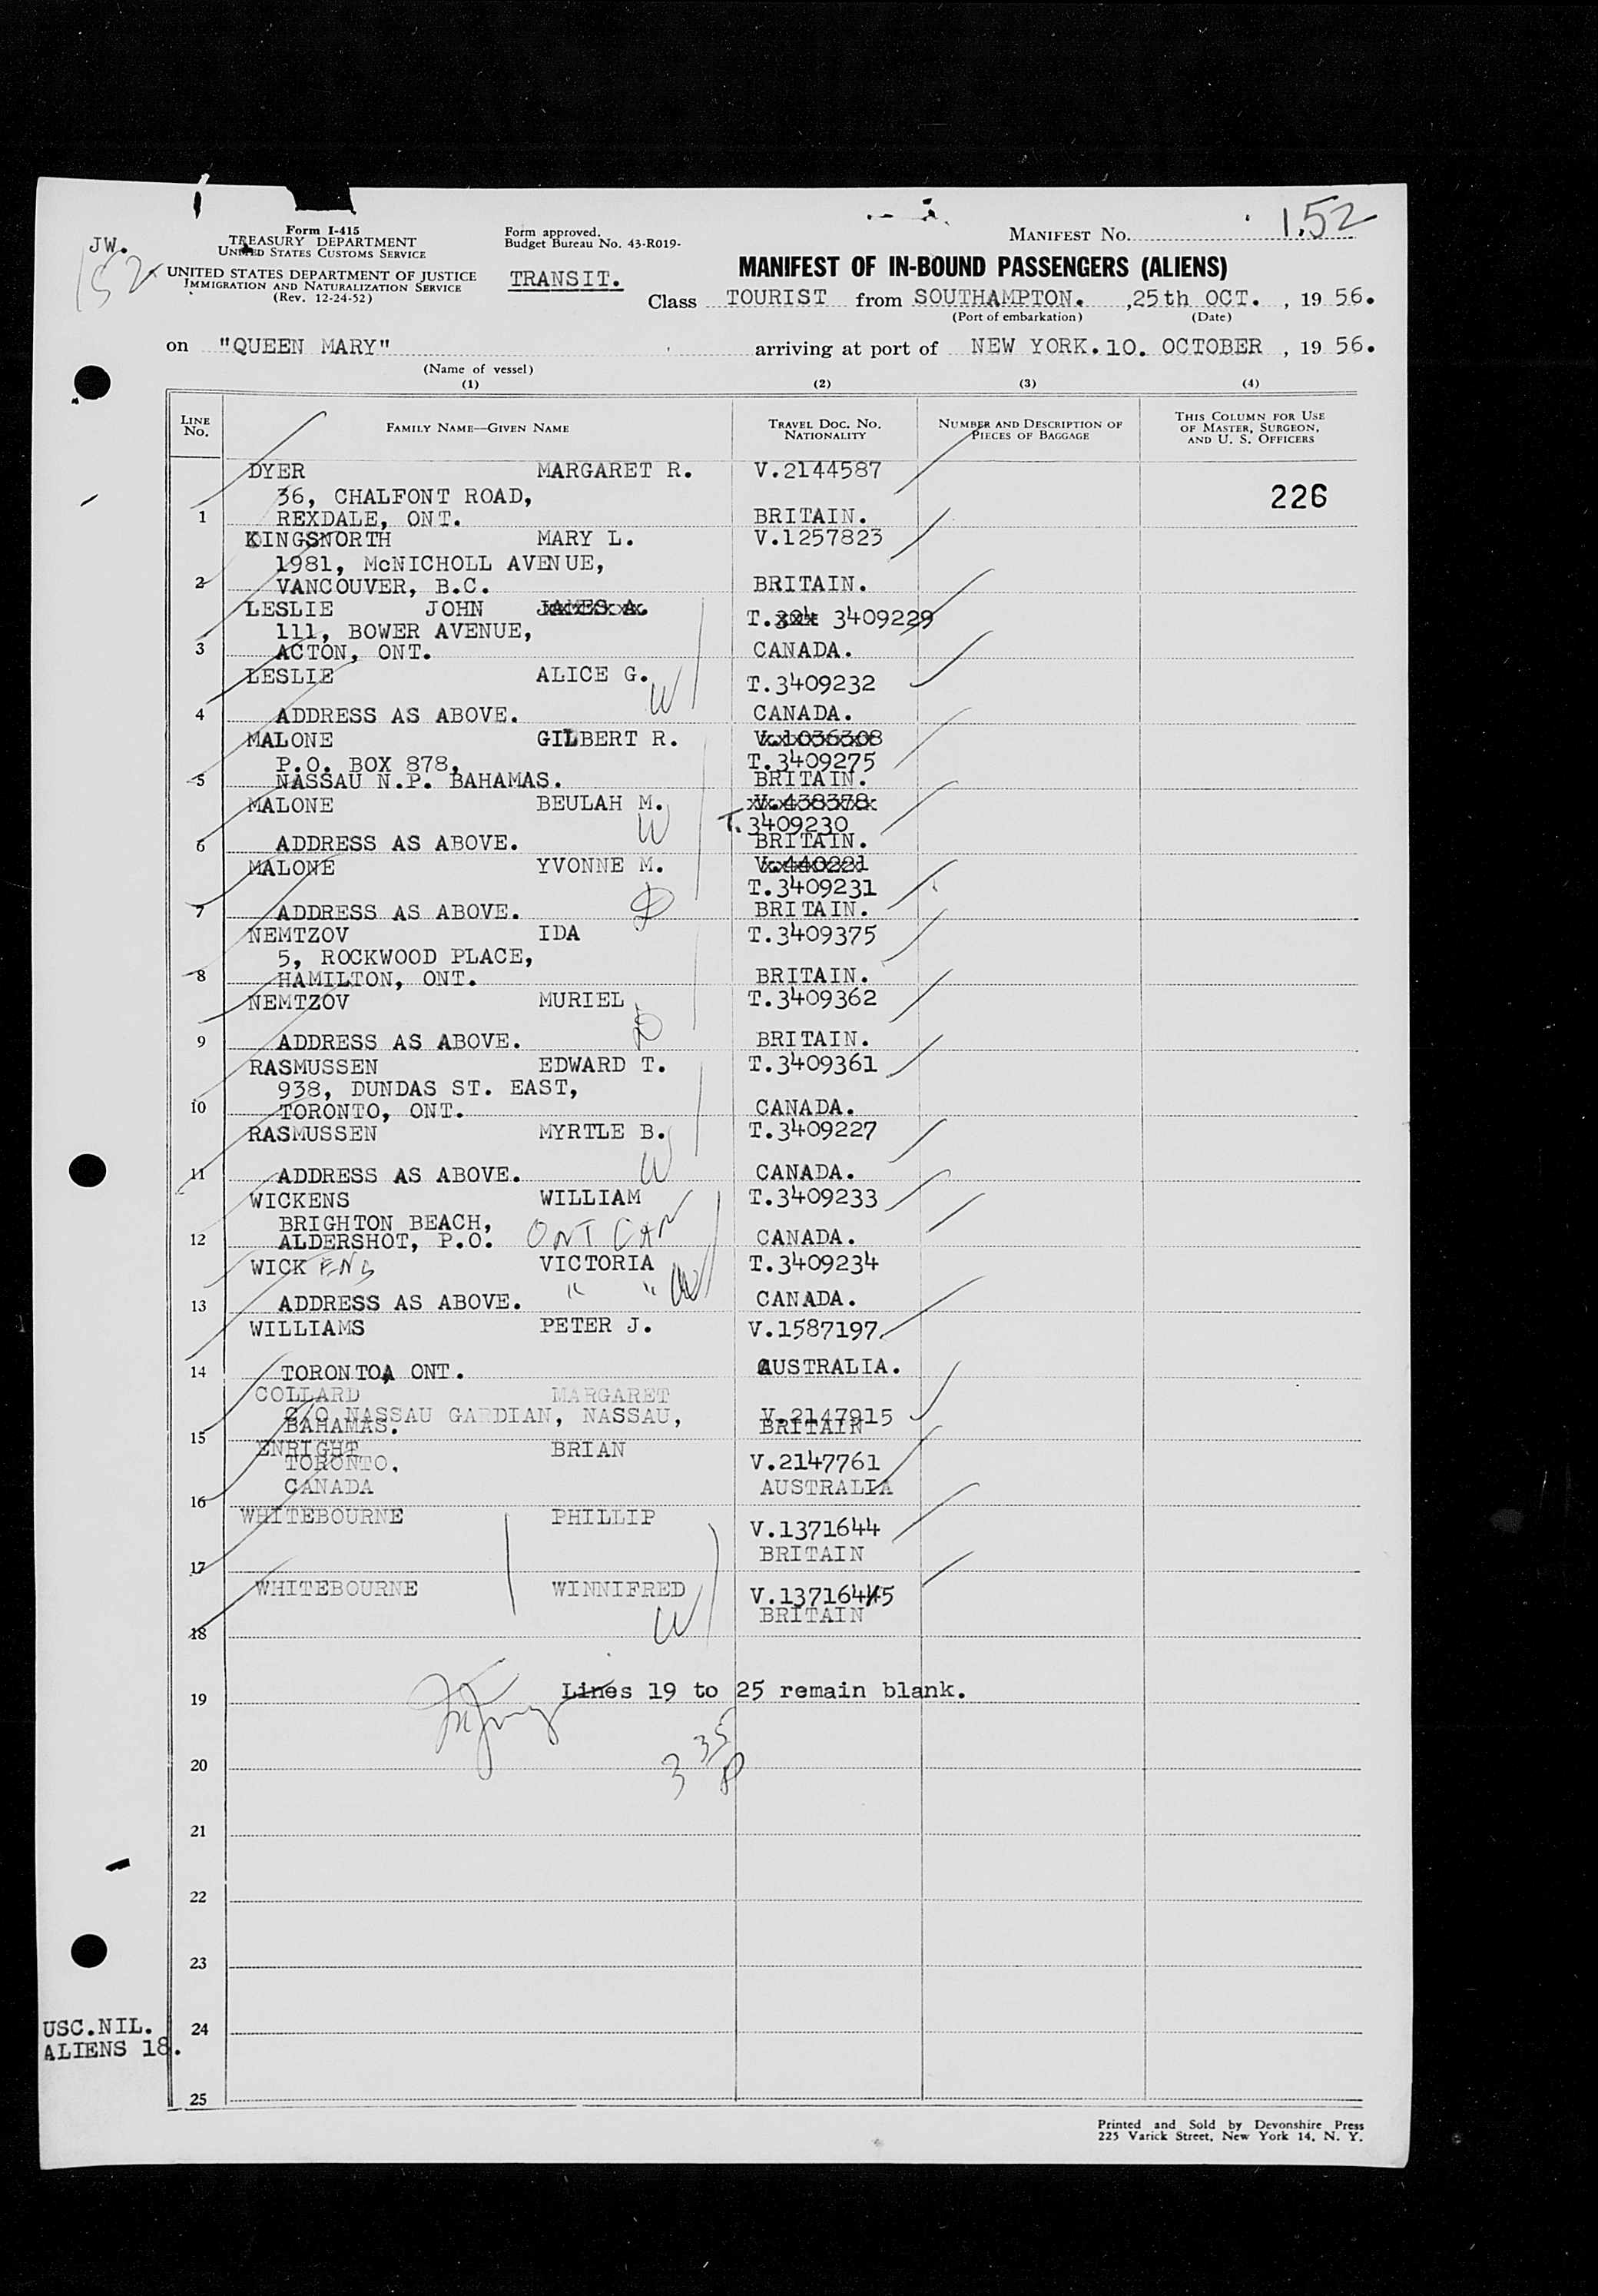 1.52
JW.
152
Form I-415
TREASURY DEPARTMENT
UNITED STATES CUSTOMS SERVICE
UNITED STATES DEPARTMENT OF JUSTICE
IMMIGRATION AND NATURALIZATION SERVICE
(Rev. 12-24-52)
Form approved.
Budget Bureau No. 43-R019-
TRANSIT.
MANIFEST NO.
MANIFEST OF IN-BOUND PASSENGERS (ALIENS)
Class TOURIST from SOUTHAMPTON. ,25th OCT. , 19 56.
(Port of embarkation) (Date)
on "QUEEN MARY" arriving at port of NEW YORK. 10. OCTOBER , 19 56.
(Name of vessel)
(1) (2) (3) (4)
LINE NO. FAMILY NAME—GIVEN NAME TRAVEL DOC. NO. NATIONALITY NUMBER AND DESCRIPTION OF PIECES OF BAGGAGE THIS COLUMN FOR USE OF MASTER, SURGEON, AND U. S. OFFICERS
DYER MARGARET R. V.2144587
36, CHALFONT ROAD, 226
1 REXDALE, ONT. BRITAIN.
KINGSNORTH MARY L. V.1257823
1981, McNICHOLL AVENUE,
2 VANCOUVER, B.C. BRITAIN.
LESLIE JOHN JAMES A. T.324 3409229
111, BOWER AVENUE,
3 ACTON, ONT. CANADA.
LESLIE ALICE G. T.3409232
W
4 ADDRESS AS ABOVE. CANADA.
MALONE GILBERT R. V.1036308
P.O. BOX 878, T.3409275
5 NASSAU N.P. BAHAMAS. BRITAIN.
MALONE BEULAH M. V.438378
W T.3409230
6 ADDRESS AS ABOVE. BRITAIN.
MALONE YVONNE M. V.440221
T.3409231
7 ADDRESS AS ABOVE. BRITAIN.
NEMTZOV IDA T.3409375
5, ROCKWOOD PLACE,
8 HAMILTON, ONT. BRITAIN.
NEMTZOV MURIEL T.3409362
9 ADDRESS AS ABOVE. BRITAIN.
RASMUSSEN EDWARD T. T.3409361
938, DUNDAS ST. EAST,
10 TORONTO, ONT. CANADA.
RASMUSSEN MYRTLE B. T.3409227
W
11 ADDRESS AS ABOVE. CANADA.
WICKENS WILLIAM T.3409233
BRIGHTON BEACH,
12 ALDERSHOT, P.O. ONT CAN CANADA.
WICKENS VICTORIA T.3409234
" " W
13 ADDRESS AS ABOVE. CANADA.
WILLIAMS PETER J. V.1587197
14 TORONTO, ONT. AUSTRALIA.
COLLARD MARGARET
C/O NASSAU GARDIAN, NASSAU, V.2147915
15 BAHAMAS. BRITAIN
ENRIGHT BRIAN
TORONTO, V.2147761
16 CANADA AUSTRALIA
WHITEBOURNE PHILLIP V.1371644
17 BRITAIN
WHITEBOURNE WINNIFRED V.1371645
W BRITAIN
18
19 Lines 19 to 25 remain blank.
20
21
22
23
USC.NIL. 24
ALIENS 18.
25
Printed and Sold by Devonshire Press
225 Varick Street, New York 14, N. Y.